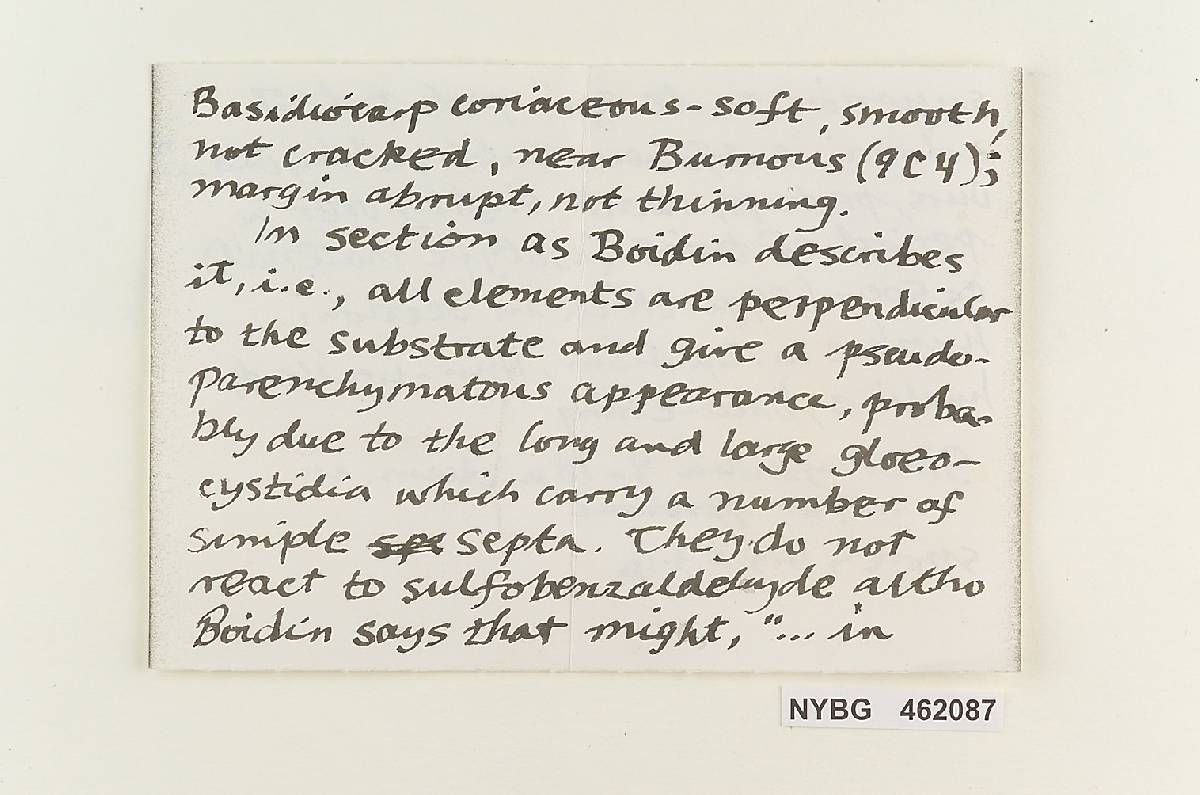 Basidiocarp coriaceous-soft, smooth,
not cracked, near Burnous (9C4);
margin abrupt, not thinning.
In section as Boidin describes
it, i.e., all elements are perpendicular
to the substrate and give a pseudo-
parenchymatous appearance, proba-
bly due to the long and large gloeo-
cystidia which carry a number of
simple septa. They do not
react to sulfobenzaldehyde altho
Boidin says that might, "... in
NYBG 462087